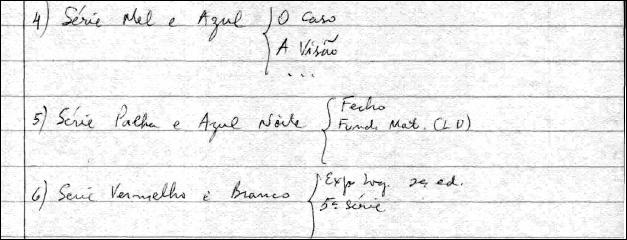 4) Série Mel e Azul { O Caso
A Visão
...
5) Série Palha e Azul Noite { Fecho
Fund. Mat. (LV)
6) Série Vermelho e Branco { Exp Log. 2ª ed.
5ª série